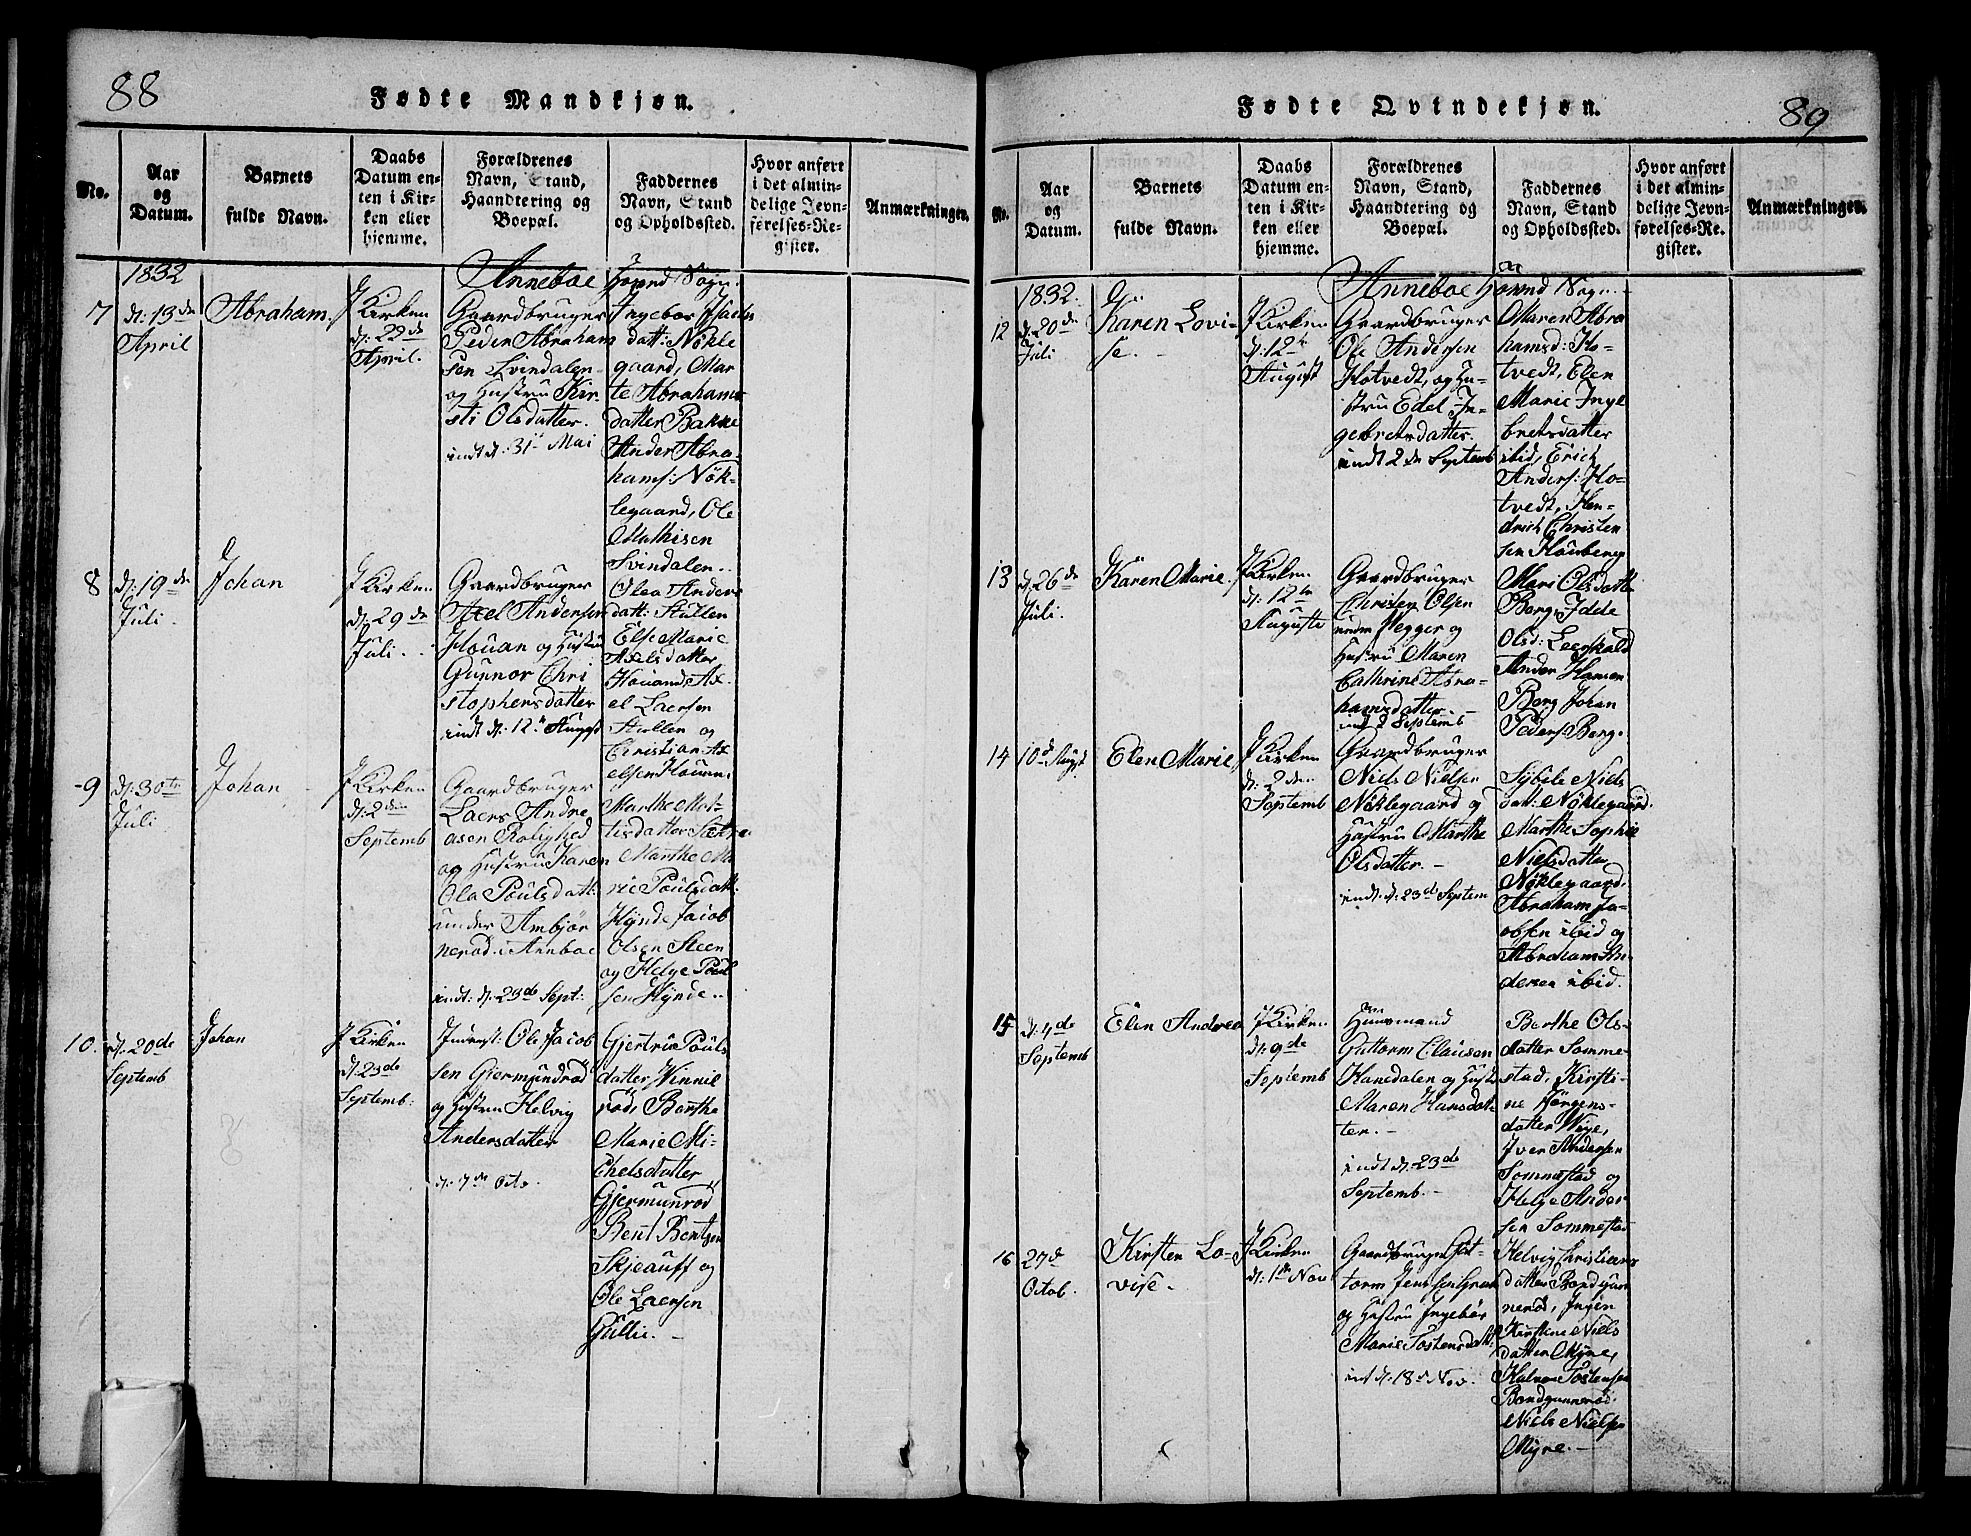 88
Fødte Mandkjøn.
No.
Aar
og
Datum.
Barnets
fulde Navn.
Daabs
Datum en-
ten i Kir-
ken eller
hjemme.
Forældrenes
Navn, Stand,
Haandtering og
Boepæl.
Faddernes
Navn, Stand
og Opholdssted.
Hvor anført
i det almin-
delige Jevn-
førelses-Re-
gister.
Anmærkninger.
1832
Anneboe Sogn.
7
d: 13de
April
Abraham.
J Kirken
d: 22de
April.
Gaardbruger
Peder Abraham
sen Svindalen
og Hustru Kir-
sti Olsdatter.
indt d: 31te Mai
Ingebor
datt: Nökle
gaard, Mar
te Abrahams
datter Bakke
Ander Abra-
hams: Nök-
legaard, Ole
Mathisen
Svindalen.
8
d: 19de
Juli.
Johan
J Kirken
d: 29de
Juli.
Gaardbruger
Axel Andersen
Houan og Hustru
Gunnor Chri
stophersdatter
indt d: 12te Augst
Olea Anders
datt: Stullen
Else Marie
Axelsdatter
Houand, Ax-
el Laersen
Stullen og
Christian Ax
elsen Houan.
9
d: 30te
Juli
Johan
J Kirken
d: 2den
Septemb
Gaardbruger
Laers Andre
asen Rolighed
og Hustru Karen
Ola Poulsdatt:
under Ambjör
nerød i Anneboe
indt: d: 23de Sept:
Marthe Mat-
tisdatter Sætre
Marthe Ma
rie Poulsdatt:
Hynde, Jacob
Olsen Steen
og Helge Poul
sen Hynde..
10.
d: 20de
Septemb
Johan
J Kirken
d: 23de
Septemb:
Inderst: Ole Jacob
sen Gjermundrød
og Hustru Helvig
Andersdatter
d: 7de Octo.
Gjertrue Pouls
datter Vinnie
rød, Berthe
Marie Mi-
chelsdatter
Gjermunrød
Bent Bentsen
Skjeauff og
Ole Laersen
Gullie. -
89
Fødte Qvindekjøn.
No.
Aar
og
Datum.
Barnets
fulde Navn.
Daabs
Datum en-
ten i Kir-
ken eller
hjemme.
Forældrenes
Navn, Stand,
Haandtering og
Boepæl.
Faddernes
Navn, Stand
og Opholdssted.
Hvor anført
i det almin-
delige Jevn-
førelses-Re-
gister.
Anmærkninger.
1832.
Anneboe Sogn.
12
d: 20de
Juli
Karen Lovi-
se. -
J Kirken
d: 12te
August
Gaardbruger
Ole Andersen
Hotvedt, og Hu-
stru Edel In-
gebretsdatter.
indt 2de Septemb
Maren Abra
hamsd: Ho-
tvedt, Elen
Marie Inge
bretsdatter
ibid, Erich
Anders: Ho-
tvedt, Hen-
drich Christen
sen Houberg
13
d: 26de
Juli.
Karen Marie.
J Kirken
d: 12te
Auguste
Gaardbruger
Christen Olsen
under Vegger og
Hustru Maren
Cathrine Abra-
hamsdatter. -
indt 2 Septemb
Mari Olsdatt:
Berg, Idde
Olsd: Leerskald
Ander Hansen
Berg, Johan
Peders Berg.
14
10d: Augst
Elen Marie
J Kirken
d: 2den
Septemb
Gaardbruger
Niels Nielsen
Nöklegaard og
Hustru Marthe
Olsdatter. -
indt: d: 23de Septem
Sybile Niels
datt: Nöklegaard.
Marthe Sophie
Nielsdatter
Nöklegaard,
Abraham Ja-
cobsen ibid og
Abraham An-
dersen ibid.
15
d: 4de
Septemb
Elen Andrea
J Kirken
d: 9de
Septemb
Huusmand
Guttorm Clausen
Hanedalen og Hust:
Maren Hansdat-
ter. -
indt d: 23de
Septemb. -
Berthe Ols-
datter Somme-
stad, Kirsti-
ne Jörgens-
datter Wiye,
Iver Andersen
Sommestad og
Helge Ander
sen Sommestad
16
27de
Octob.
Kirsten Lo-
vise. -
J Kirken
d: 1ste Nov
Gaardbruger Gut-
torm Jenssen
og Hustru Ingebör
Marie Tostensdatt:
indt d: 18de Nov.
Helvig Christians
datter Bondgun-
nerød, Ingen
Kirstine Niels
datter Myre,
Halvor Tostensen
Bondgunnerød,
Niels Nielsen
Myre. -